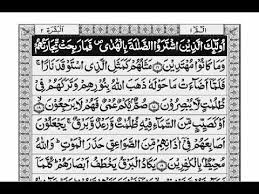 البقرة ٢
الٓمّٓ ١
اُولٰٓئِكَ الَّذِیْنَ اشْتَرَوُا الضَّلٰلَةَ بِالْهُدٰی۪ فَمَا رَبِحَتْ تِّجَارَتُهُمْ
وَمَا كَانُوْا مُهْتَدِیْنَ ۝۱۶ مَثَلُهُمْ كَمَثَلِ الَّذِی اسْتَوْقَدَ نَارًا ۚ
فَلَمَّاۤ اَضَآءَتْ مَا حَوْلَهٗ ذَهَبَ اللّٰهُ بِنُوْرِهِمْ وَتَرَكَهُمْ فِیْ
ظُلُمٰتٍ لَّا یُبْصِرُوْنَ ۝۱۷ صُمٌّۢ بُكْمٌ عُمْیٌ فَهُمْ لَا یَرْجِعُوْنَ ۝۱۸
اَوْ كَصَیِّبٍ مِّنَ السَّمَآءِ فِیْهِ ظُلُمٰتٌ وَّرَعْدٌ وَّبَرْقٌ ۚ یَجْعَلُوْنَ
اَصَابِعَهُمْ فِیْۤ اٰذَانِهِمْ مِّنَ الصَّوَاعِقِ حَذَرَ الْمَوْتِ ؕ وَاللّٰهُ
مُحِیْطٌۢ بِالْكٰفِرِیْنَ ۝۱۹ یَكَادُ الْبَرْقُ یَخْطَفُ اَبْصَارَهُمْ ؕ كُلَّمَاۤ